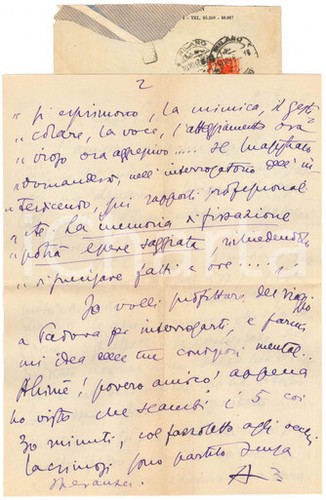 TEL. 
MILANO
2
" si esprimono, la mimica, il gesti
" colare, la voce, l'atteggiamento ora
" virgo ora aggressivo ..... Il magistrato
" domanderà, nell'interrogatorio dell'in
" terdicendo, sui rapporti professional
" etc. La memoria di fissazione
" potrà essere saggiata, richiedendo
" di precisare fatti e ore ....,
Io volli profittare del viaggio
a Padova per interrogarti, e farmi
mi idea delle tue condizioni mental..
Ahimè! povero amico! appena
ho visto che scambi i 5 coi
30 minuti, col fazzoletto agli occhi
lacrimosi sono partito senza
speranza.